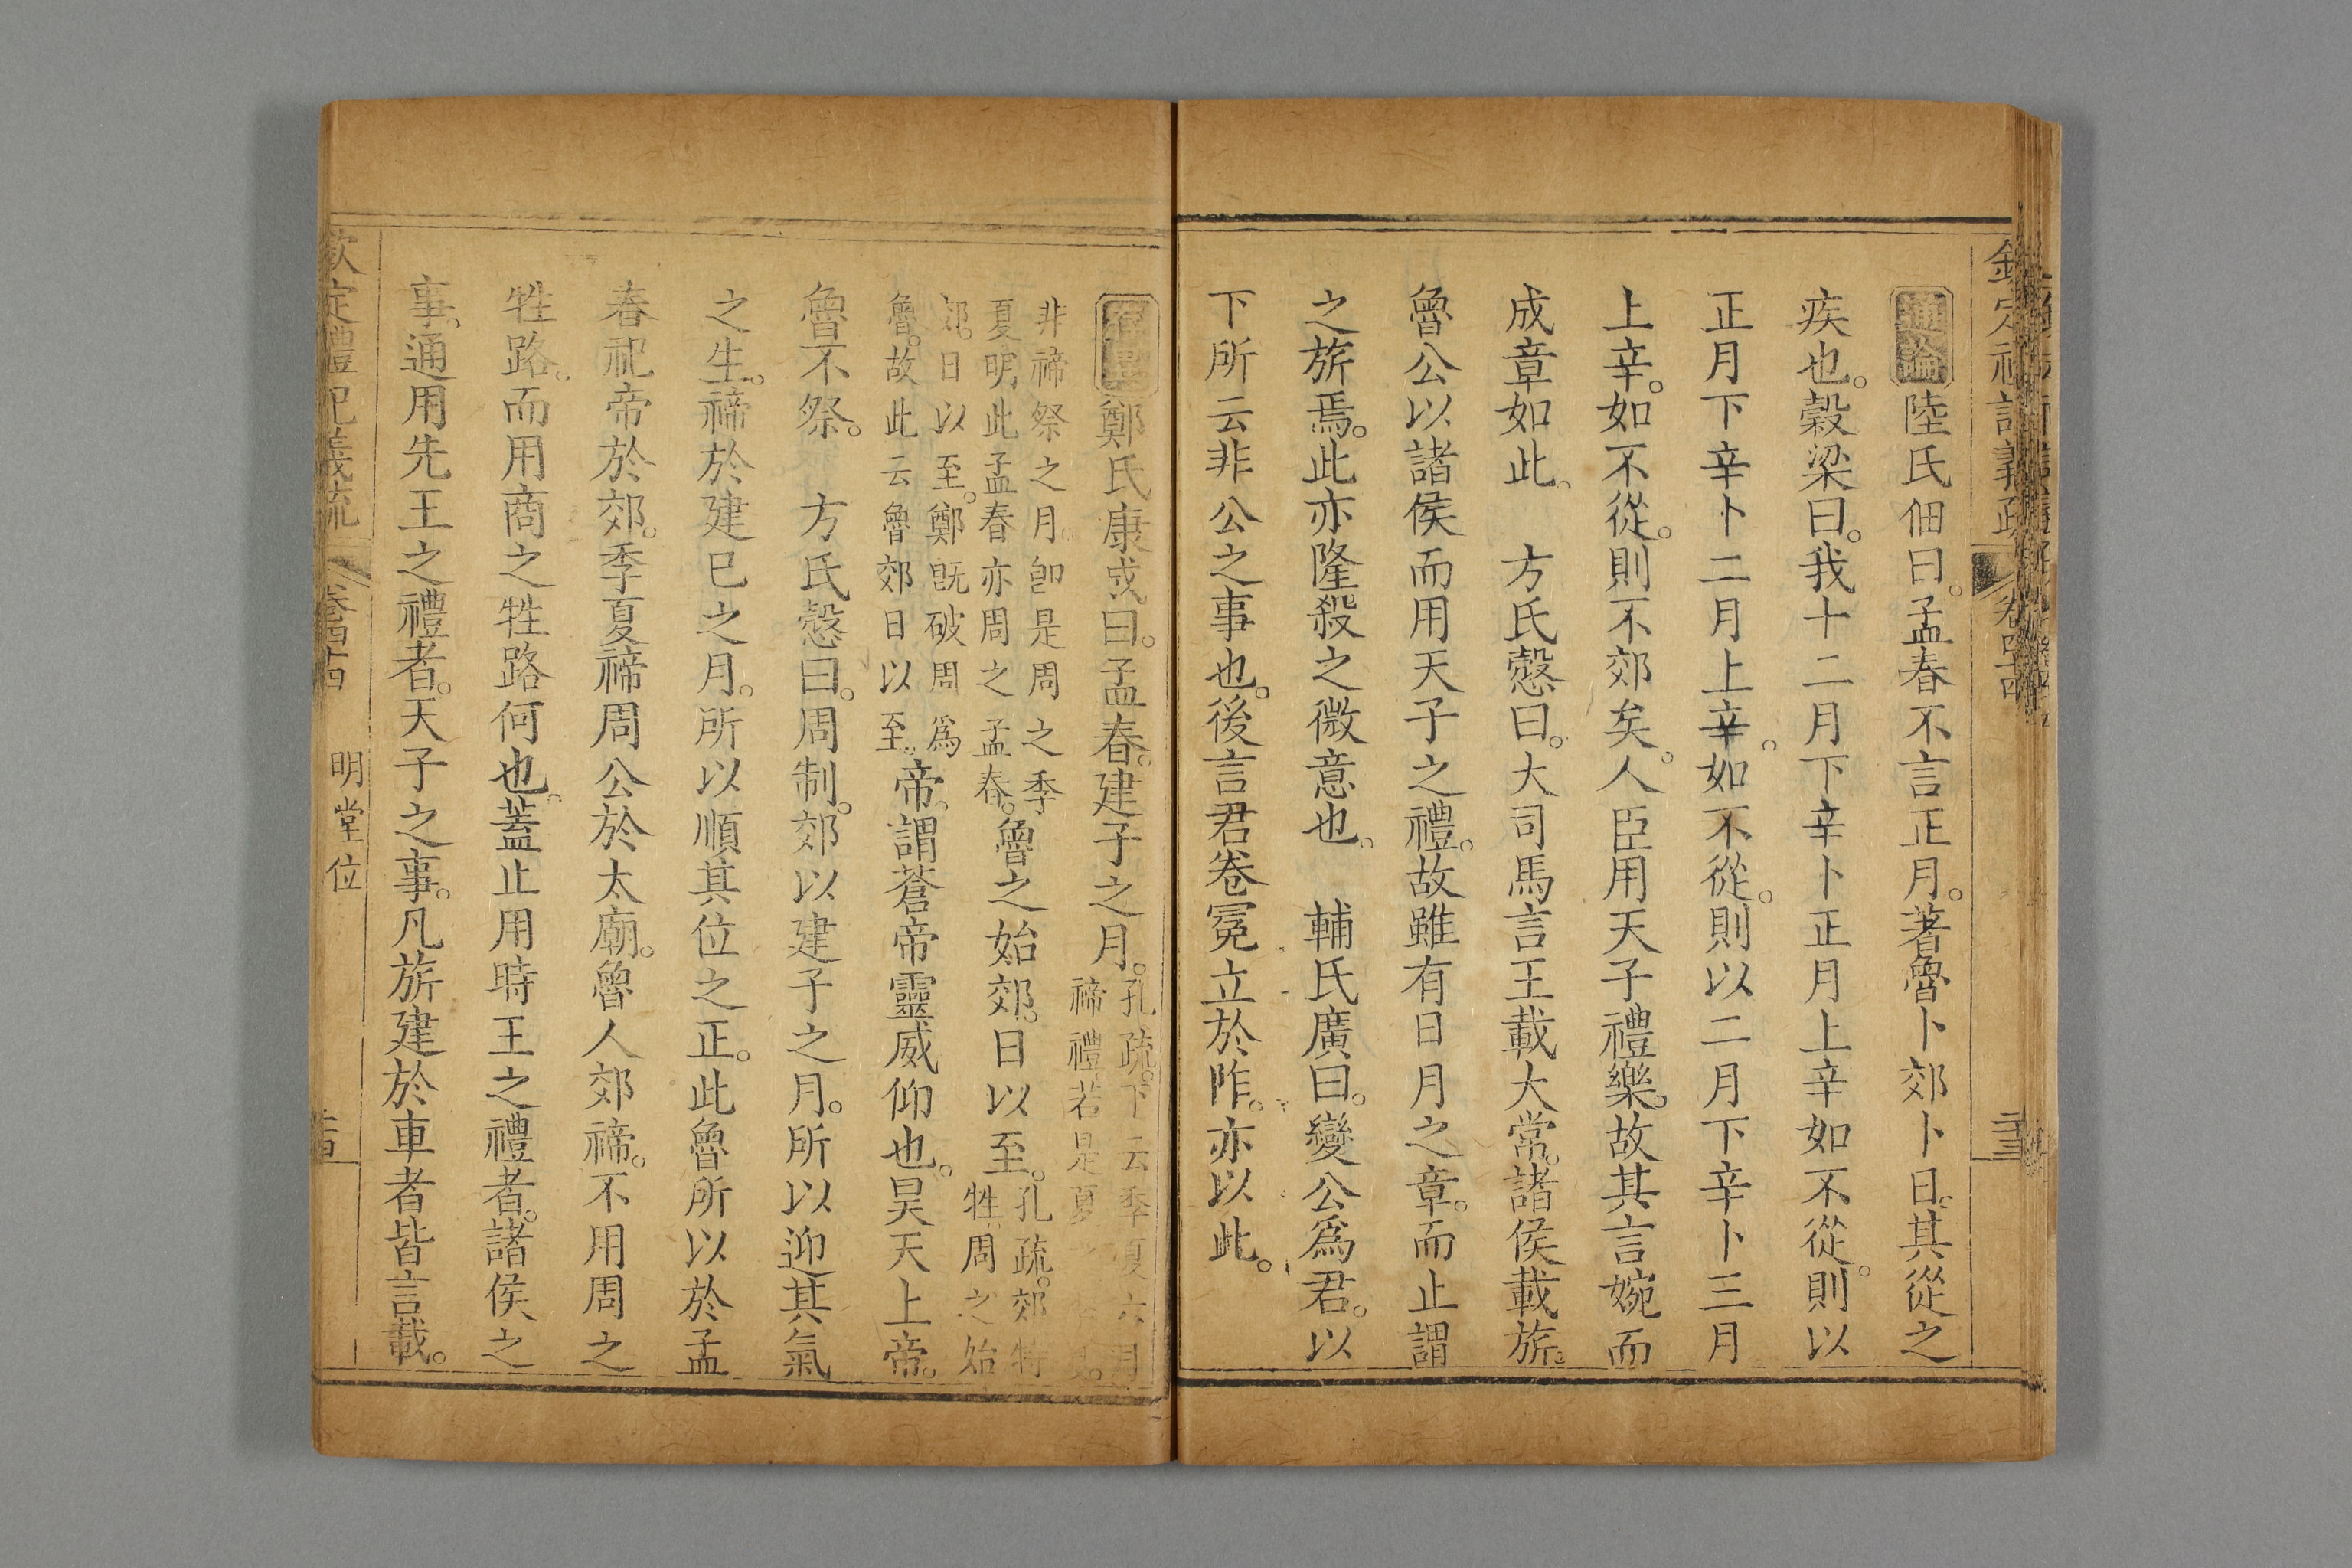 通論陸氏佃曰。孟春不言正月。著魯卜郊卜日。其從之
疾也。穀梁曰。我十二月下辛卜正月上辛如不從。則以
正月下辛卜二月上辛。如不從。則以二月下辛卜三月
上辛。如不從。則不郊矣。人臣用天子禮樂。故其言婉而
成章如此。　方氏慤曰。大司馬言王載大常。諸侯載旂。
魯公以諸侯而用天子之禮。故雖有日月之章。而止謂
之旂焉。此亦隆殺之微意也。　輔氏廣曰。變公爲君。以
下所云非公之事也。後言君卷冕立於阼。亦以此。
鄭氏康成曰。孟春。建子之月。
孔疏。下云季夏六月
禘禮若是夏
非禘祭之月。卽是周之季
夏明。此孟春亦周之孟春。
魯之始郊。日以至。
孔疏。郊特
牲。周之始
郊。日以至。鄭旣破周爲
魯。故此云魯郊日以至。
帝。謂蒼帝靈威仰也。昊天上帝。
魯不祭。　方氏慤曰。周制。郊以建子之月。所以迎其氣
之生。禘於建巳之月。所以順其位之正。此魯所以於孟
春祀帝於郊。季夏禘周公於太廟。魯人郊禘。不用周之
牲路。而用商之牲路何也。蓋止用時王之禮者。諸侯之
事。通用先王之禮者。天子之事。凡旂建於車者皆言載。
欽定禮記義疏
卷四十四
明堂位